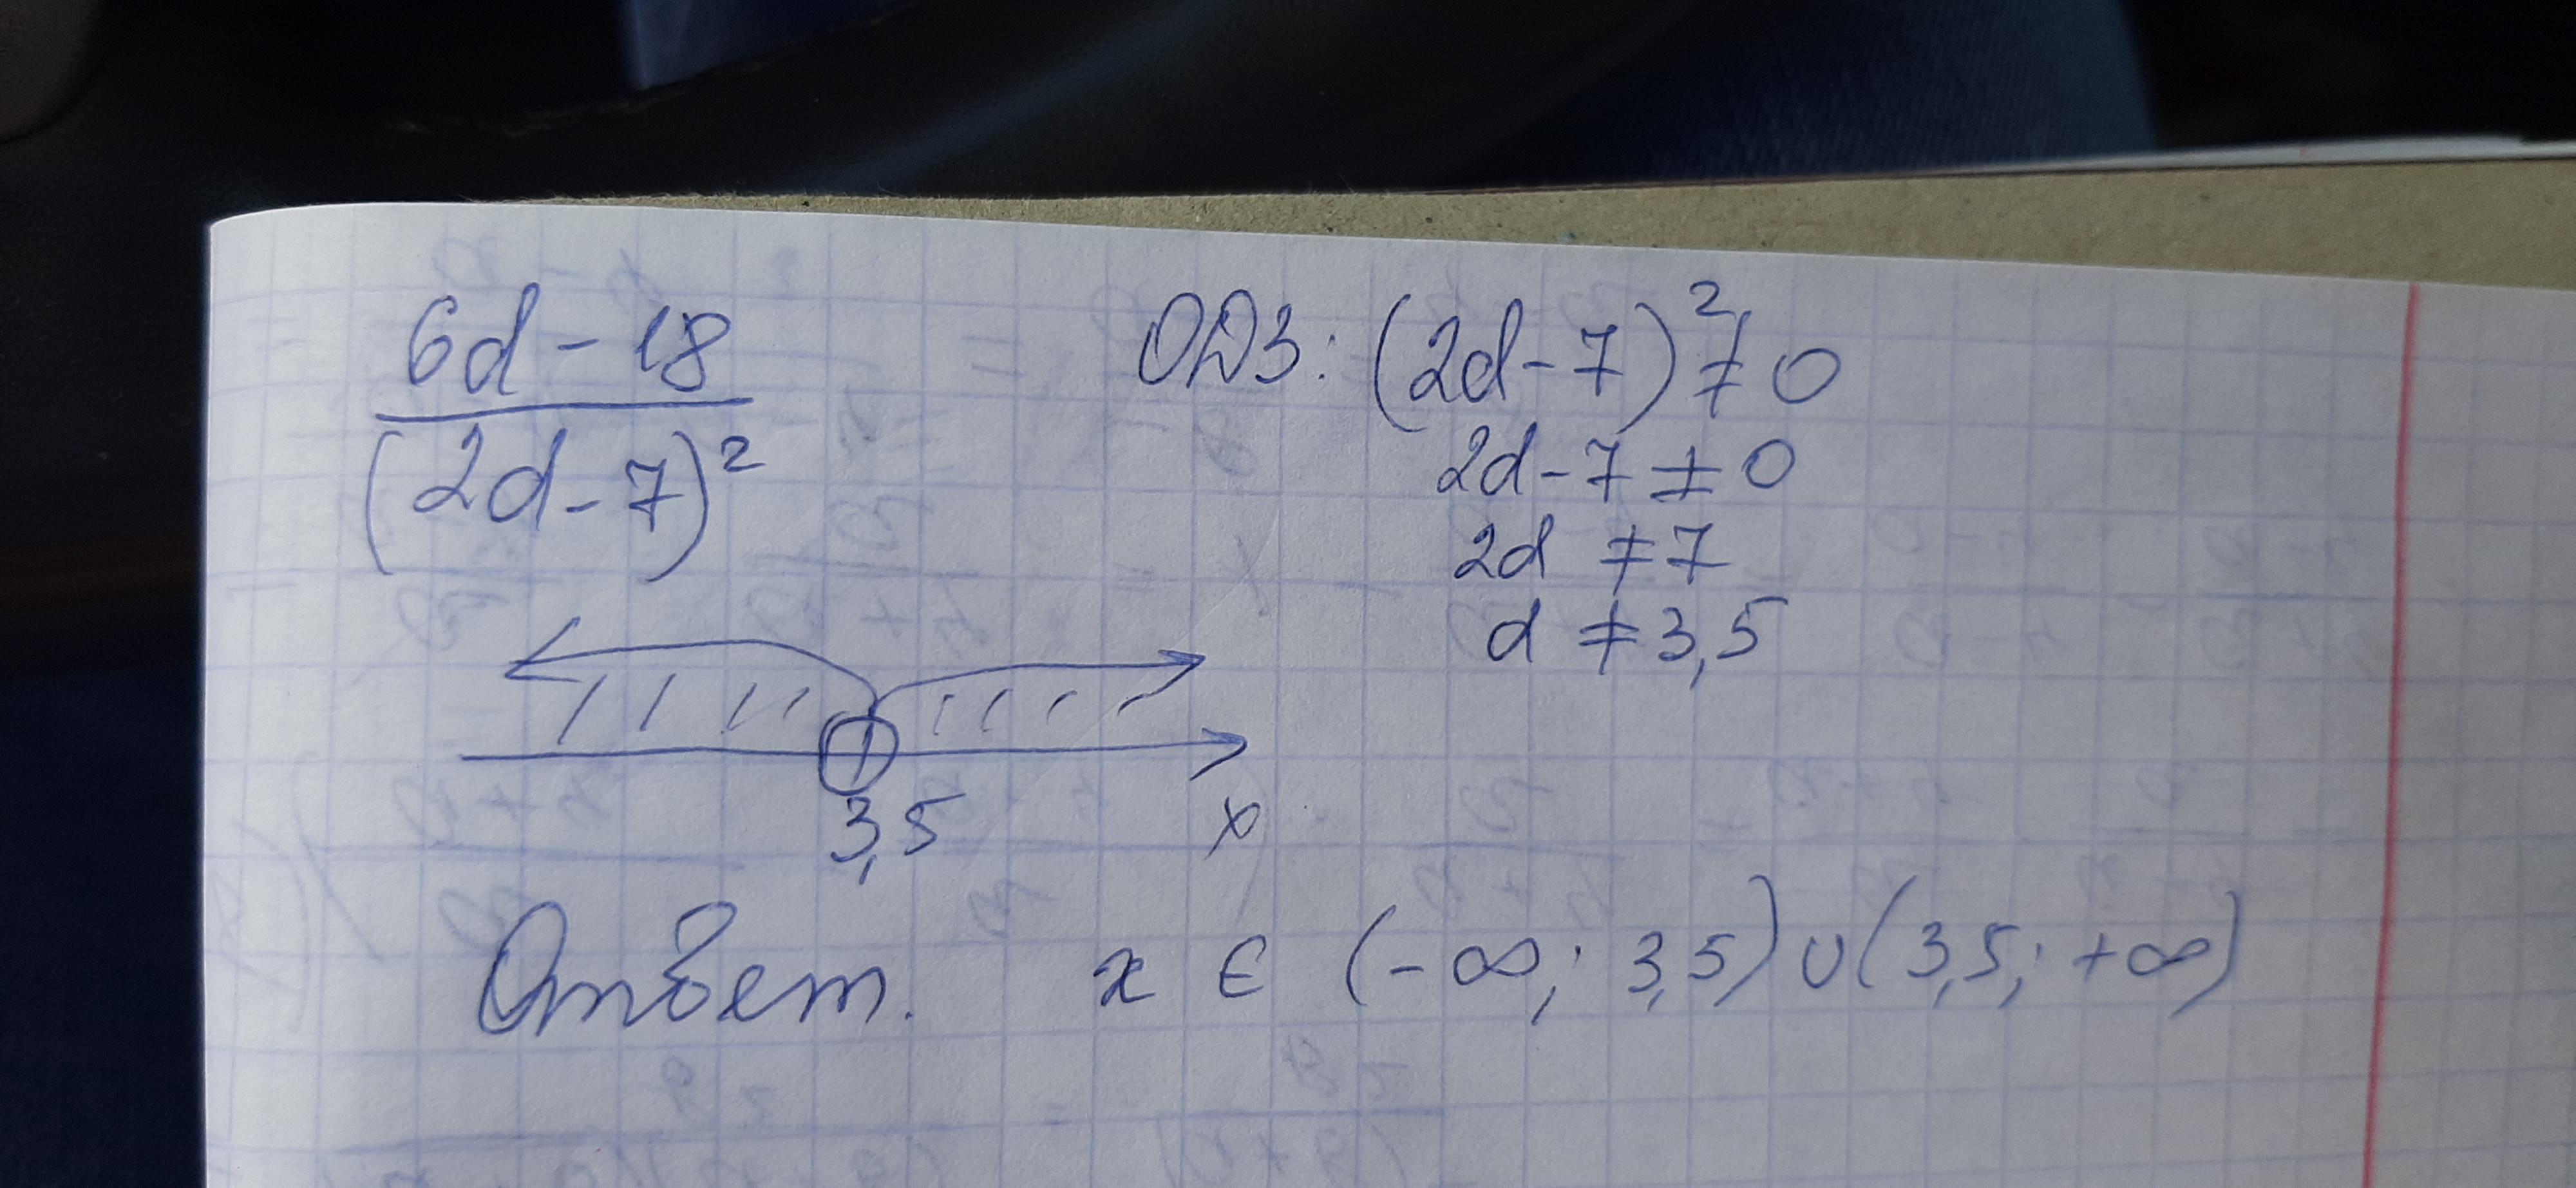 6d - 18
(2d - 7)²
ОДЗ: (2d - 7)² ≠ 0
2d - 7 ≠ 0
2d ≠ 7
d ≠ 3,5
3,5
x
Ответ. x ∈ (-∞; 3,5) ∪ (3,5; +∞)